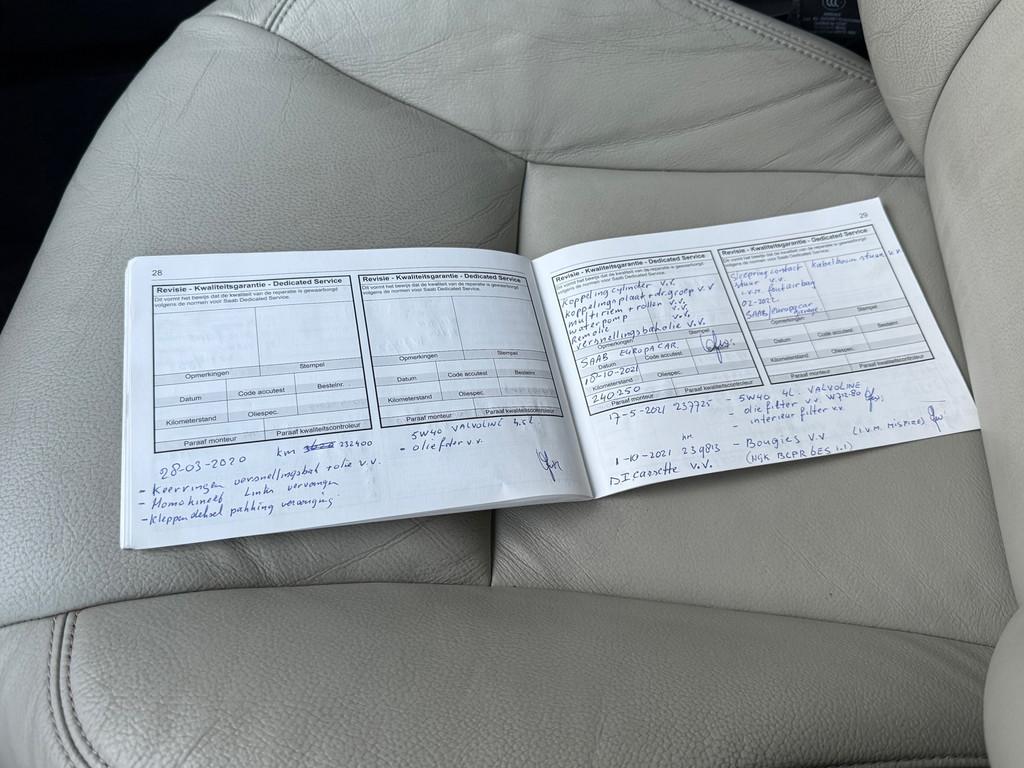 28
Revisie - Kwaliteitsgarantie - Dedicated Service
Dit vormt het bewijs dat de kwaliteit van de reparatie is gewaarborgd
volgens de normen voor Saab Dedicated Service.
Opmerkingen
Stempel
Datum
Code acc/test
Bestelnr.
Kilometerstand
Oliespec.
Paraaf monteur
Paraaf kwaliteitscontroleur
28-03-2020 km 232400
- Keerringen versnellingsbak + olie v.v.
- Homokineet Links vervangen
- Kleppendeksel pakking vervanging
Revisie - Kwaliteitsgarantie - Dedicated Service
Dit vormt het bewijs dat de kwaliteit van de reparatie is gewaarborgd
volgens de normen voor Saab Dedicated Service.
Opmerkingen
Stempel
Datum
Code acc/test
Bestelnr.
Kilometerstand
Oliespec.
Paraaf monteur
Paraaf kwaliteitscontroleur
5W40 VALVOLINE 4,5L
- oliefilter v.v.
29
Revisie - Kwaliteitsgarantie - Dedicated Service
Dit vormt het bewijs dat de kwaliteit van de reparatie is gewaarborgd
volgens de normen voor Saab Dedicated Service.
Koppeling cylinder v.v.
koppelingsplaat + dr.groep v.v
multiriem + rollen v.v.
waterpomp v.v.
Remolie v.v.
versnellingsbakolie v.v.
Opmerkingen
Stempel
SAAB EUROPACAR
Datum
Code acc/test
18-10-2021
Kilometerstand
Oliespec.
240250
Paraaf monteur
Paraaf kwaliteitscontroleur
17-5-2021 237725
1-10-2021 239813 km
D.I. Cassette v.v.
Revisie - Kwaliteitsgarantie - Dedicated Service
Dit vormt het bewijs dat de kwaliteit van de reparatie is gewaarborgd
volgens de normen voor Saab Dedicated Service.
Sleepring contact
stuur v.v
i.v.m. fout airbag
02-2022
SAAB/europacar
Kabelboom stuur v.v
Opmerkingen
Stempel
Datum
Code acc/test
Bestelnr.
Kilometerstand
Oliespec.
Paraaf monteur
Paraaf kwaliteitscontroleur
- 5W40 4L. VALVOLINE
- olie filter v.v. W712-80
- interieur filter v.v.
- Bougies v.v (I.V.M. MISFIRE)
(NGK BCPR 6ES 1.1)